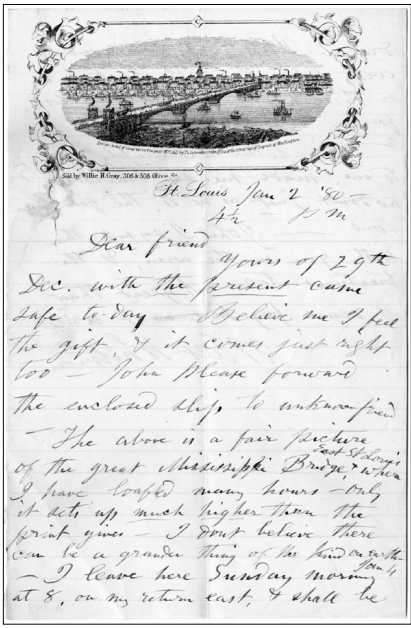 Sold by Willie H. Gray, 306 & 308 Olive St.
St. Louis Jan 2 '80 -
4½ - P M
Dear friend
Yours of 29th
Dec. with the present came
safe to-day - Believe me I feel
the gift, & it comes just right
too - John please forward
the enclosed slip to unknown friend
- The above is a fair picture
of the great Mississippi Bridge, East St Louis & where
I have loafed many hours - only
it sets up much higher than the
print gives - I don't believe there
can be a grander thing of the kind on earth
- I leave here Sunday morning Jan 4
at 8, on my return east, & shall be